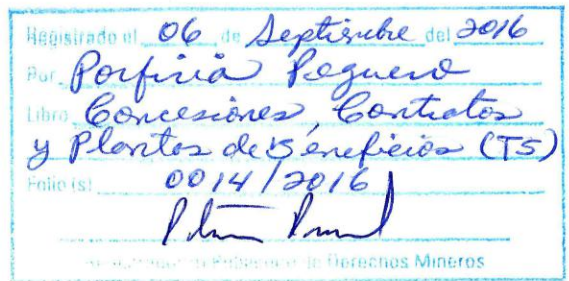 Registrado el 06 de Septiembre del 2016
Por Porfiria Peguero
Libro Concesiones, Contratos
y Plantas de Beneficios (T5)
Folio (s) 0014/2016
Público de Derechos Mineros